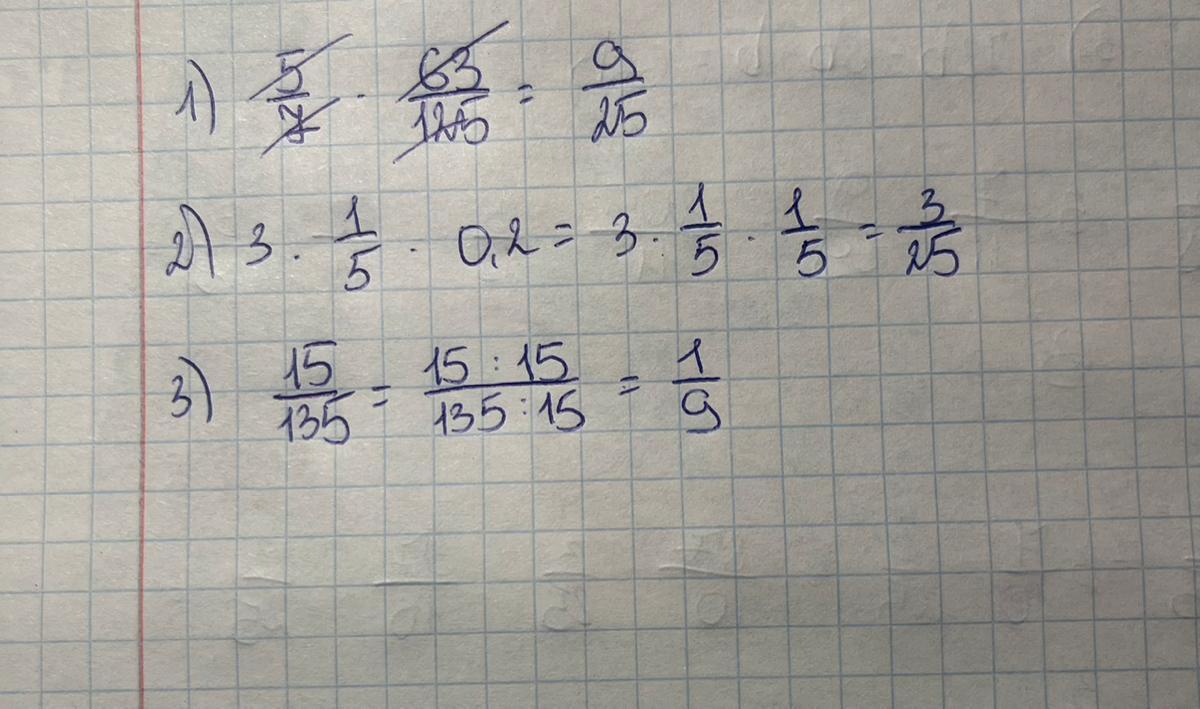 1) 5/7 · 63/125 = 9/25
2) 3 · 1/5 · 0,2 = 3 · 1/5 · 1/5 = 3/25
3) 15/135 = 15:15/135:15 = 1/9